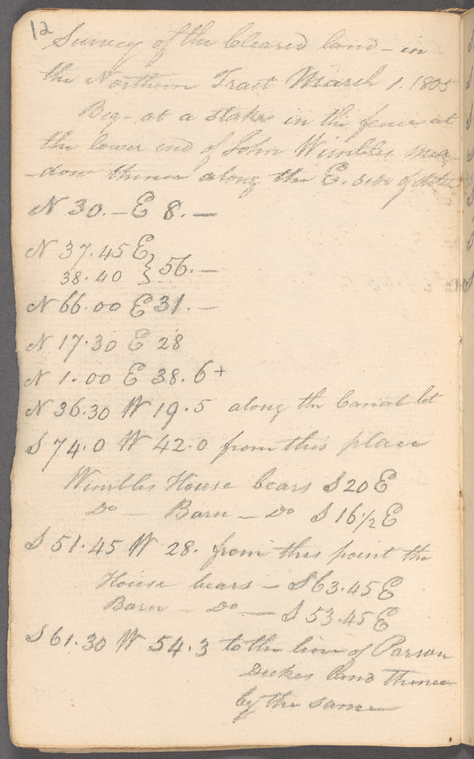 12
Survey of the Cleared land - in
the Northern Tract March 1. 1805
Beg - at a stake in the fence at
the lower end of John Wimbles mea-
-dow thence along the E. side of
N 30. - E 8. -
N 37.45 E } 56. -
38.40
N 66.00 E 31. -
N 17.30 E 28
N 1.00 E 38.6+
N 36.30 W 19.5 along the Canal lot
S 74.0 W 42.0 from this place
Wimbles House bears S 20 E
Do - Barn - Do S 16 1/2 E
S 51.45 W 28. from this point the
House bears - S 63.45 E
Barn - Do - S 53.45 E
S 61.30 W 54.3 to the line of Parson
land thence
by the same